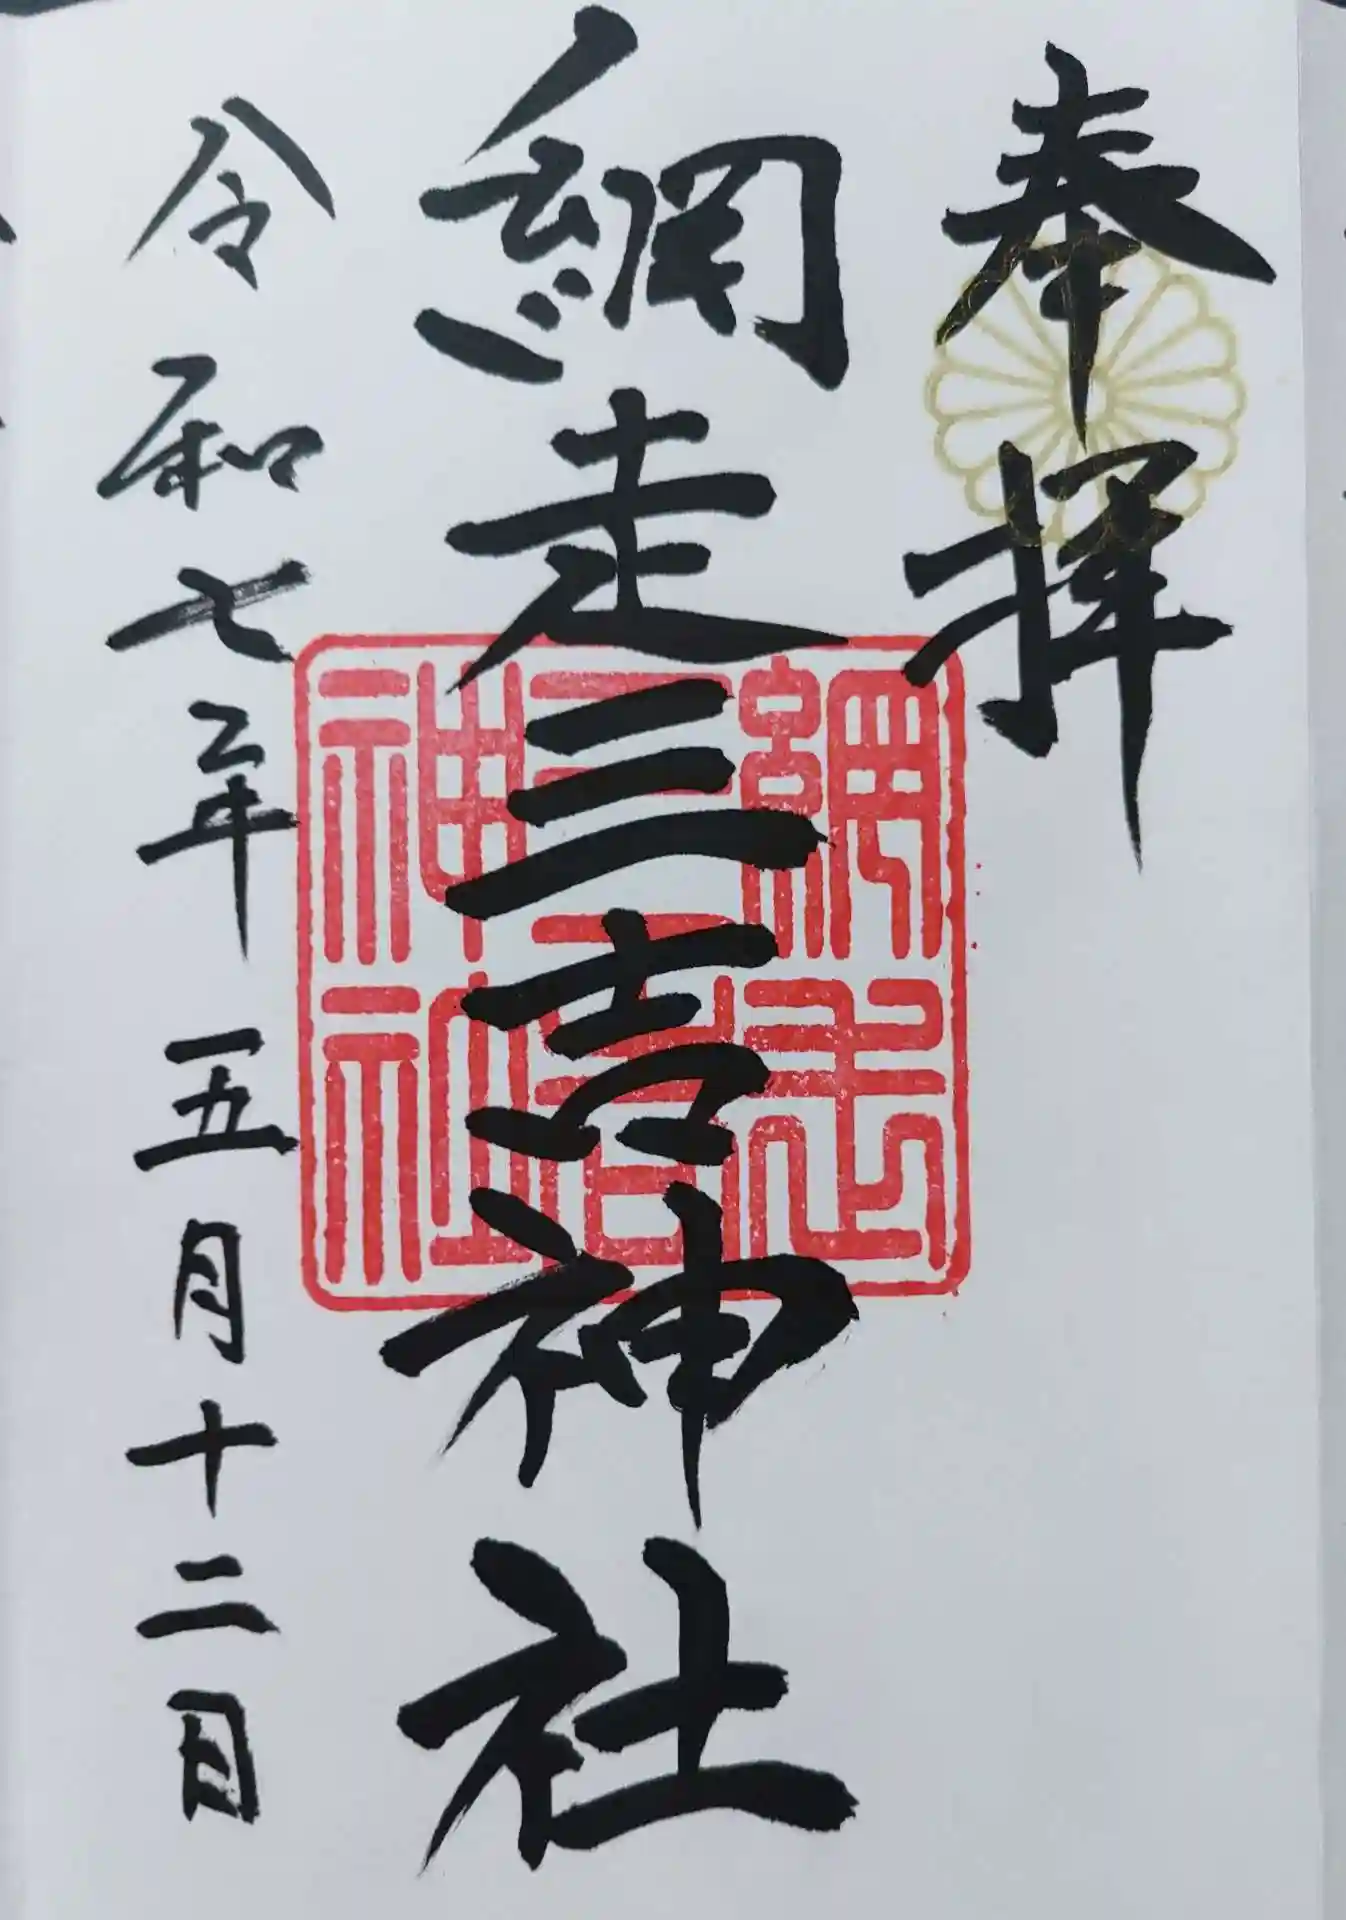 奉拝
網走三吉神社
網走
三吉
神社
令和七年 五月十二日